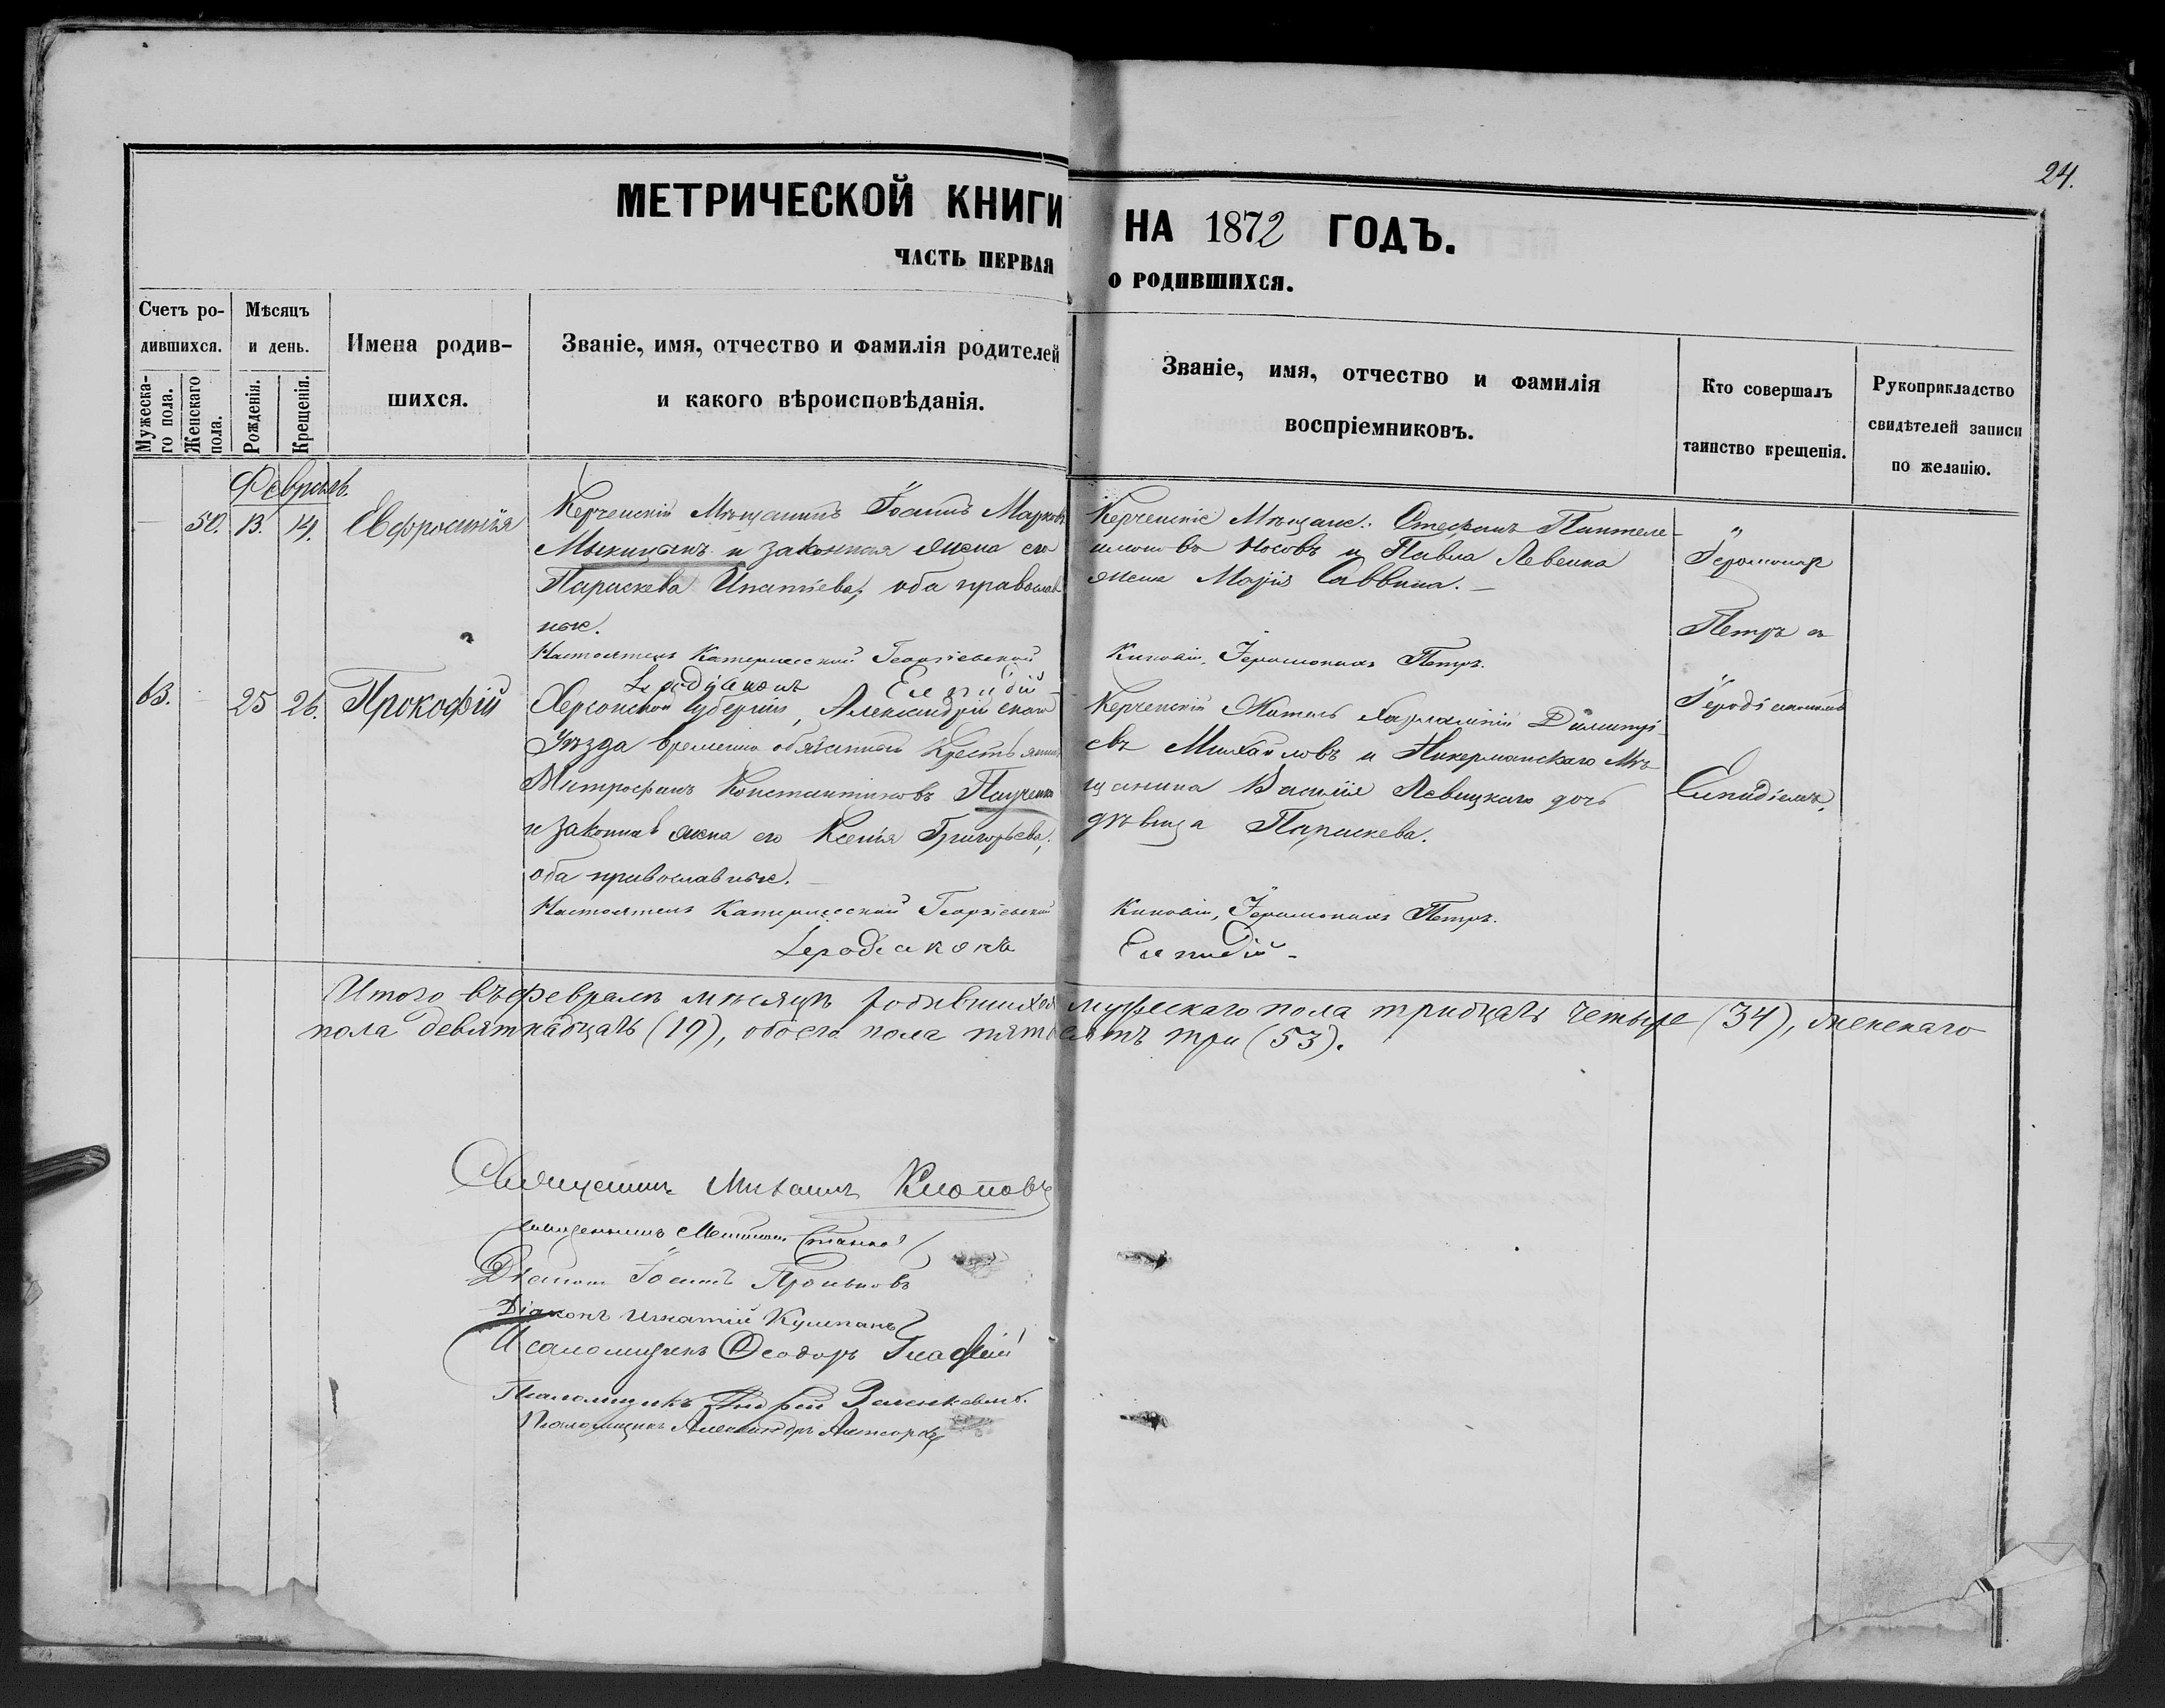 24.
МЕТРИЧЕСКОЙ КНИГИ НА 1872 ГОДЪ.
ЧАСТЬ ПЕРВАЯ О РОДИВШИХСЯ.
Счетъ ро-
дившихся.
Мужеска-
го пола.
Женскаго
пола.
Мѣсяцъ
и день.
Рожденія.
Крещенія.
Имена родив-
шихся.
Званіе, имя, отчество и фамилія родителей
и какого вѣроисповѣданія.
Званіе, имя, отчество и фамилія
воспріемниковъ.
Кто совершалъ
таинство крещенія.
Рукоприкладство
свидѣтелей записи
по желанію.
Февраль.
50. 13. 14. Евфросинія
Керченскій Мѣщанинъ Іоаннъ Марковъ
и законная жена его
Параскева Ипатіева, оба православ
ные.
Керченскіе Мѣщане: Стефанъ Пантеле-
имоновъ Носовъ и Павла Левенка
жена Марія Саввина.
Іеромонахъ
Петръ съ
Іеродіакономъ
Елпидіемъ.
Настоятель Катерлесской Георгіевской Киновіи, Іеромонахъ Петръ.
Іеродіаконъ Елпидій
63. 25 26. Прокофій
Херсонской Губерніи, Александрійскаго
Уѣзда временно обязанный Крестьянинъ
Митрофанъ Константиновъ
и законная жена его Ксенія Григорьева,
оба православные.
Керченскій Житель Харлампій Димитрі-
евъ Михайловъ и Аккерманскаго Мѣ-
щанина Василія Левицкаго дочь
дѣвица Параскева.
Настоятель Катерлесской Георгіевской Киновіи, Іеромонахъ Петръ.
Іеродіаконъ Елпидій
Итого въ февралѣ мѣсяцѣ родившихся мужескаго пола тридцать четыре (34), женскаго
пола девятнадцать (19), обоего пола пятьдесятъ три (53).
Священникъ Михаилъ Клоповъ
Священникъ
Діаконъ Іоаннъ
Діаконъ Игнатій
Псаломщикъ Ѳеодоръ
Псаломщикъ Андрей
Псаломщикъ Александръ